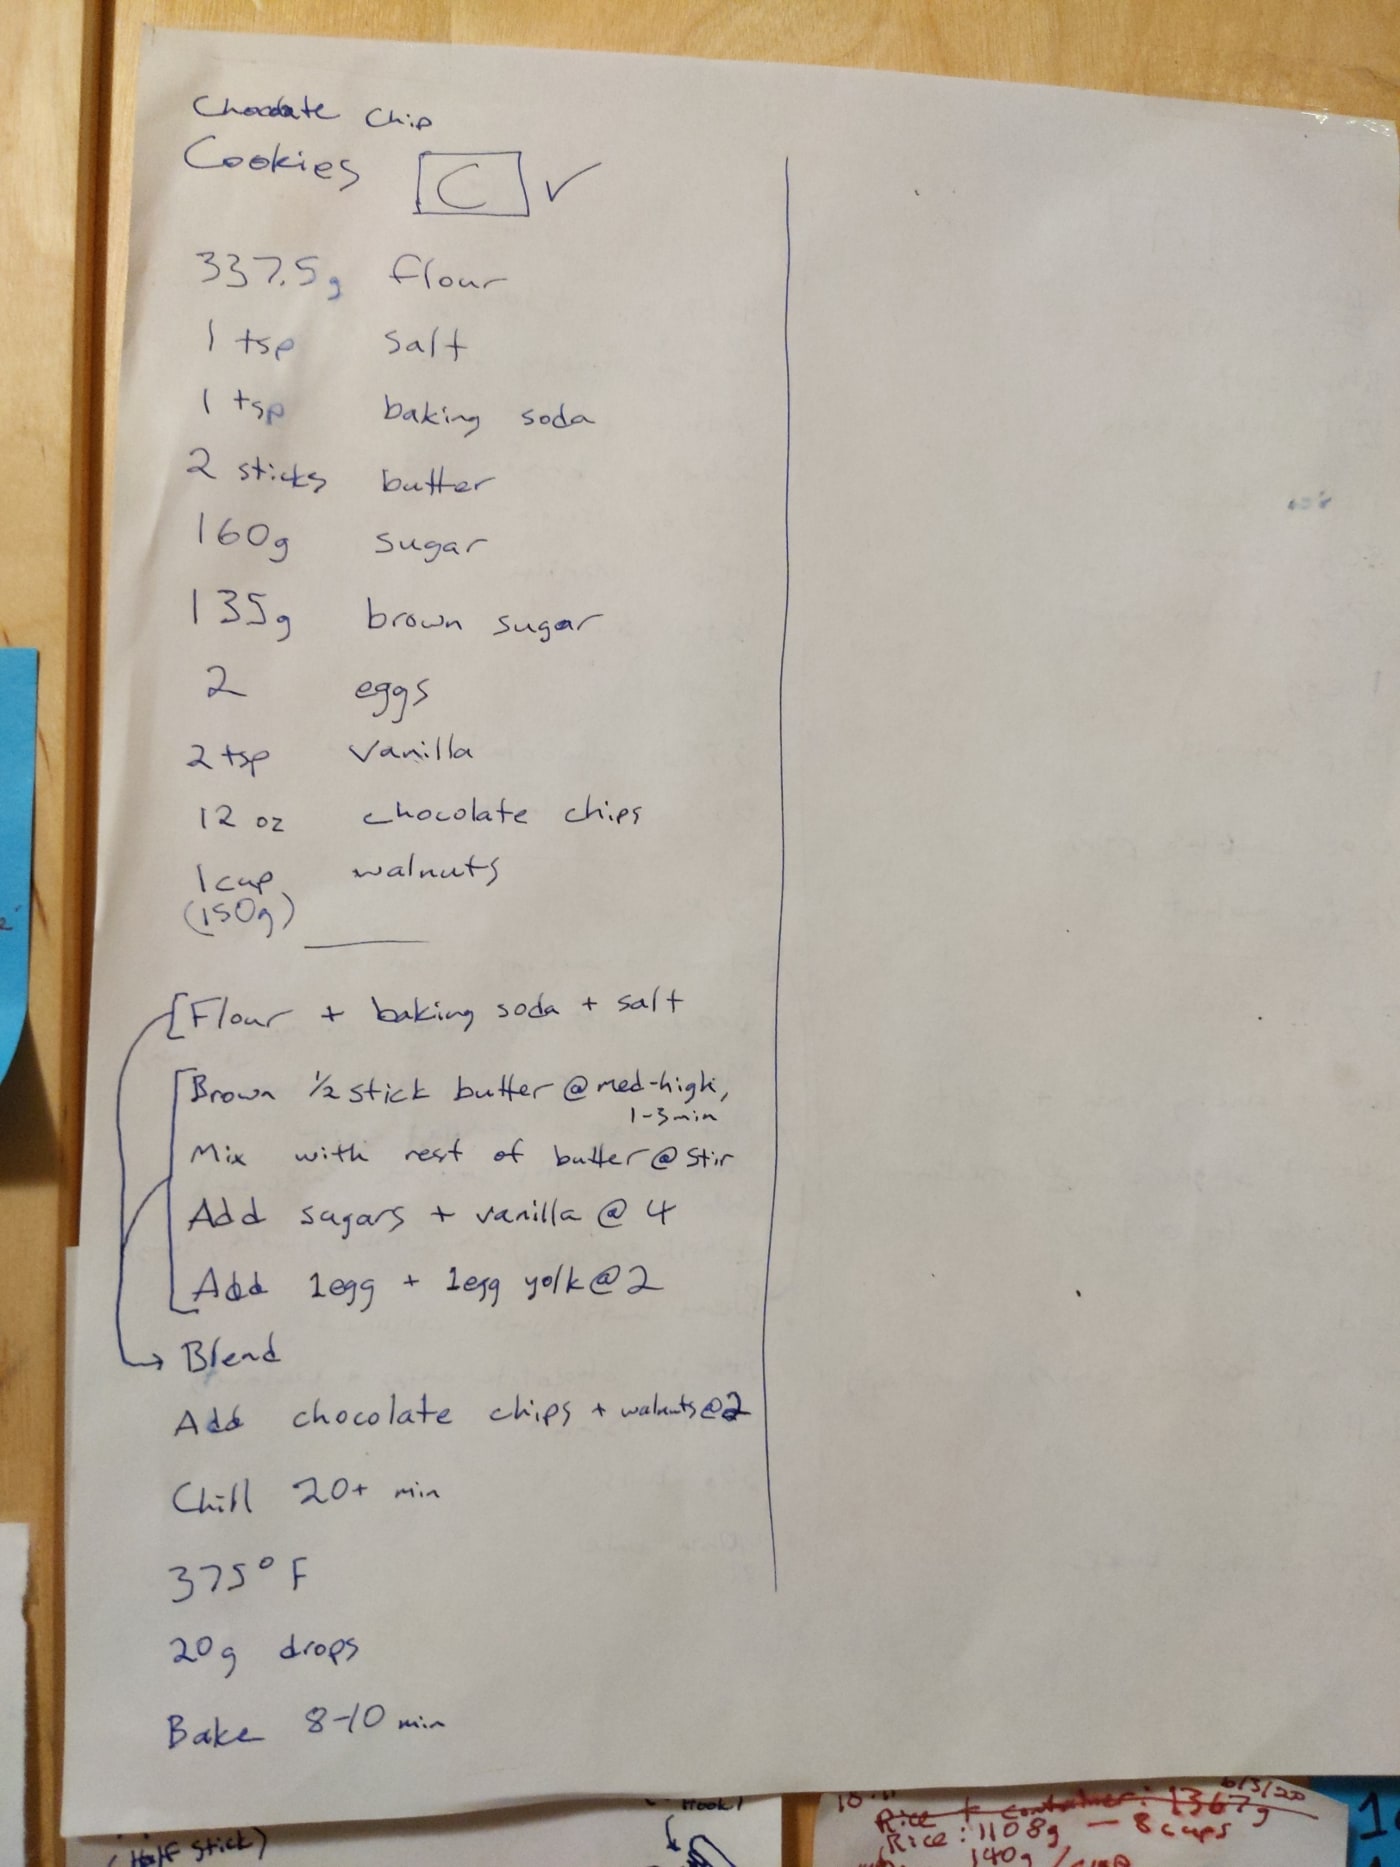 Chocolate Chip
Cookies C ✓
337.5g flour
1 tsp salt
1 tsp baking soda
2 sticks butter
160g sugar
135g brown sugar
2 eggs
2 tsp vanilla
12 oz chocolate chips
1 cup walnuts
(150g)
[Flour + baking soda + salt
Brown 1/2 stick butter @ med-high,
1-3 min
Mix with rest of butter @ stir
Add sugars + vanilla @ 4
Add 1 egg + 1 egg yolk @ 2
→ Blend
Add chocolate chips + walnuts @ 2
Chill 20+ min
375° F
20g drops
Bake 8-10 min
6/3/20
Rice + container: 1367g
Rice: 1108g — 8 cups
140g /
(Half stick)
Hook)